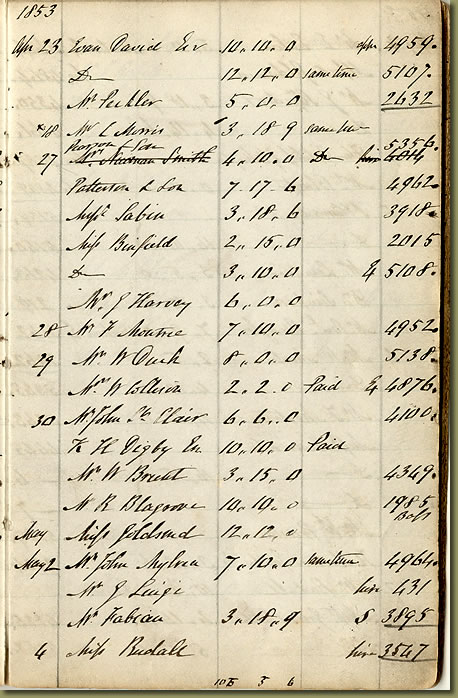 1853
Apr 23 Evan David Esr 10.. 10.. 0 appr 4959.
Do 12.. 12.. 0 same time 5107.
Mr Pickler 5.. 0.. 0 2632
18 Mr L Morris 3.. 18 9 same time
Harmon & Son 5356.
27 Mr Smith 4.. 10.. 0 Do hire
Patterson & Son 7-17-6 4962.
Missr Sabin 3.. 18.. 6 3918.
Miss Binfield 2.. 15.. 0 2015
Do 3.. 10.. 0 & 5108.
Mr J Harvey 6.. 0.. 0
28 Mr F Moutrie 7.. 10.. 0 4952.
29 Mr W Duck 8.. 0.. 0 5138.
Mr W Collison 2.. 2.. 0 Paid & 4876.
30 Mr John St Clair 6.. 6.. 0 4100.
K H Digby Esr 10.. 10.. 0 Paid
Mr W Brett 3.. 15.. 0 4349.
Mr R Blagrove 10.. 10.. 0 1985
Bass
May Miss Goldsmid 12.. 12.. 0
May 2 Mr John Mylrea 7.. 10.. 0 same time 4964.
Mr G Luigi hire 431
Mr Fabian 3.. 18.. 9 S 3895
4 Miss Rudall hire 3547
105 3 6